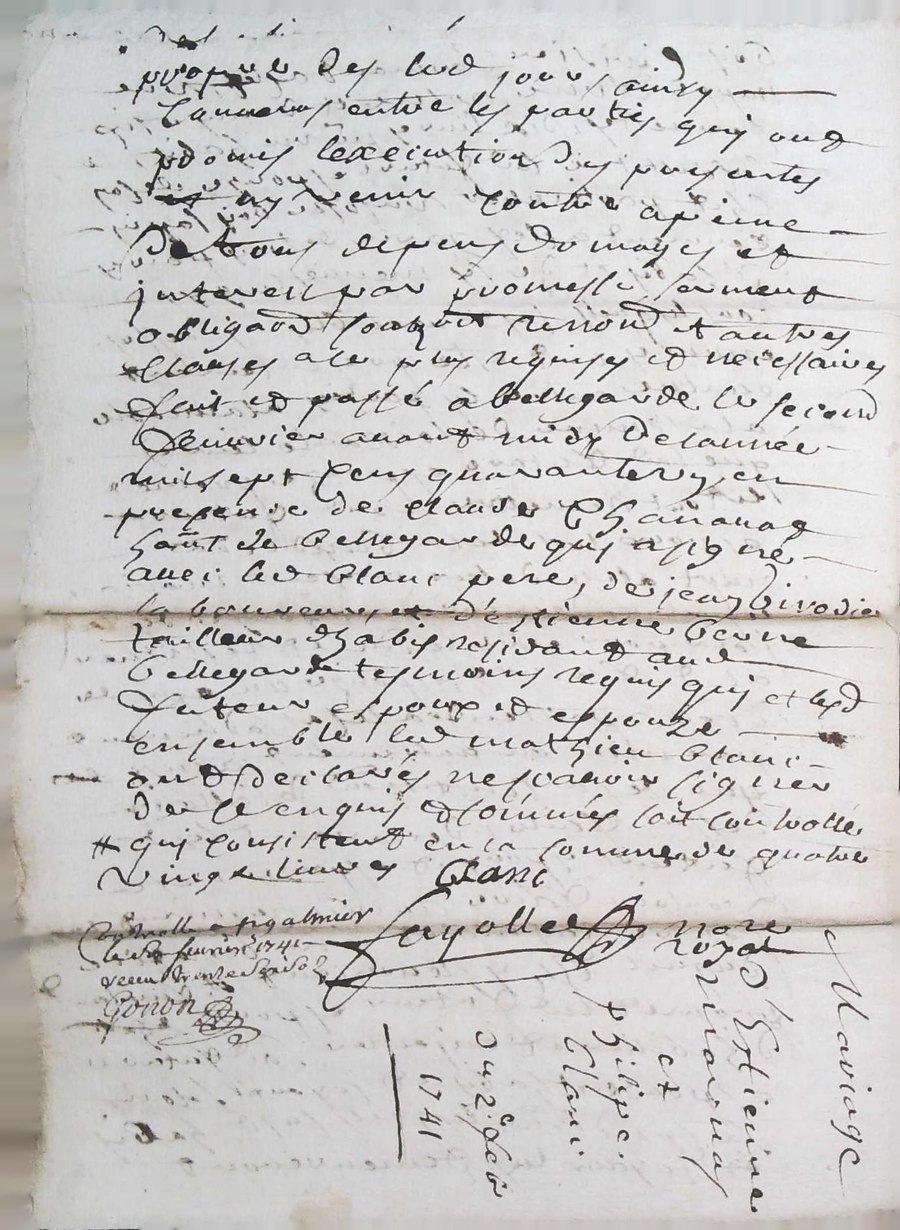 propres des led jour, ainsy
convenus entre les parties quy ont
promis lexecution des presentes
ny venir contre apeine
De tous depens domages et
jnterest par promesse serment
obligaon soubzt renond et autres
clauses a ce plus requises et necessaires
fait et passé a bellegarde le second
feuvrier avant midy de lannée
mil sept cens quarante vn, en
presence de claude Chanavat
hañt de bellegarde quy a signé
avec led blanc pere, de jean Girodia
laboureur, et d'estienne berne
tailleur dhabis residant aud
bellegarde tesmoins requis quy et lesd
futeur espoux et espouze
ensemble led mathieu blanc
ont declarés ne scavoir signer
de ce enquis et sommés soit controllé
# quy consistent en la somme de quatre
vingt livres Blanc
Fayolle nore
royal
Controllé a st galmier
le fevrier 1741
receu trente six sols
Gonon
Mariage
D'Estienne
marquy
et
philipe
blanc
Du 2e feb
1741